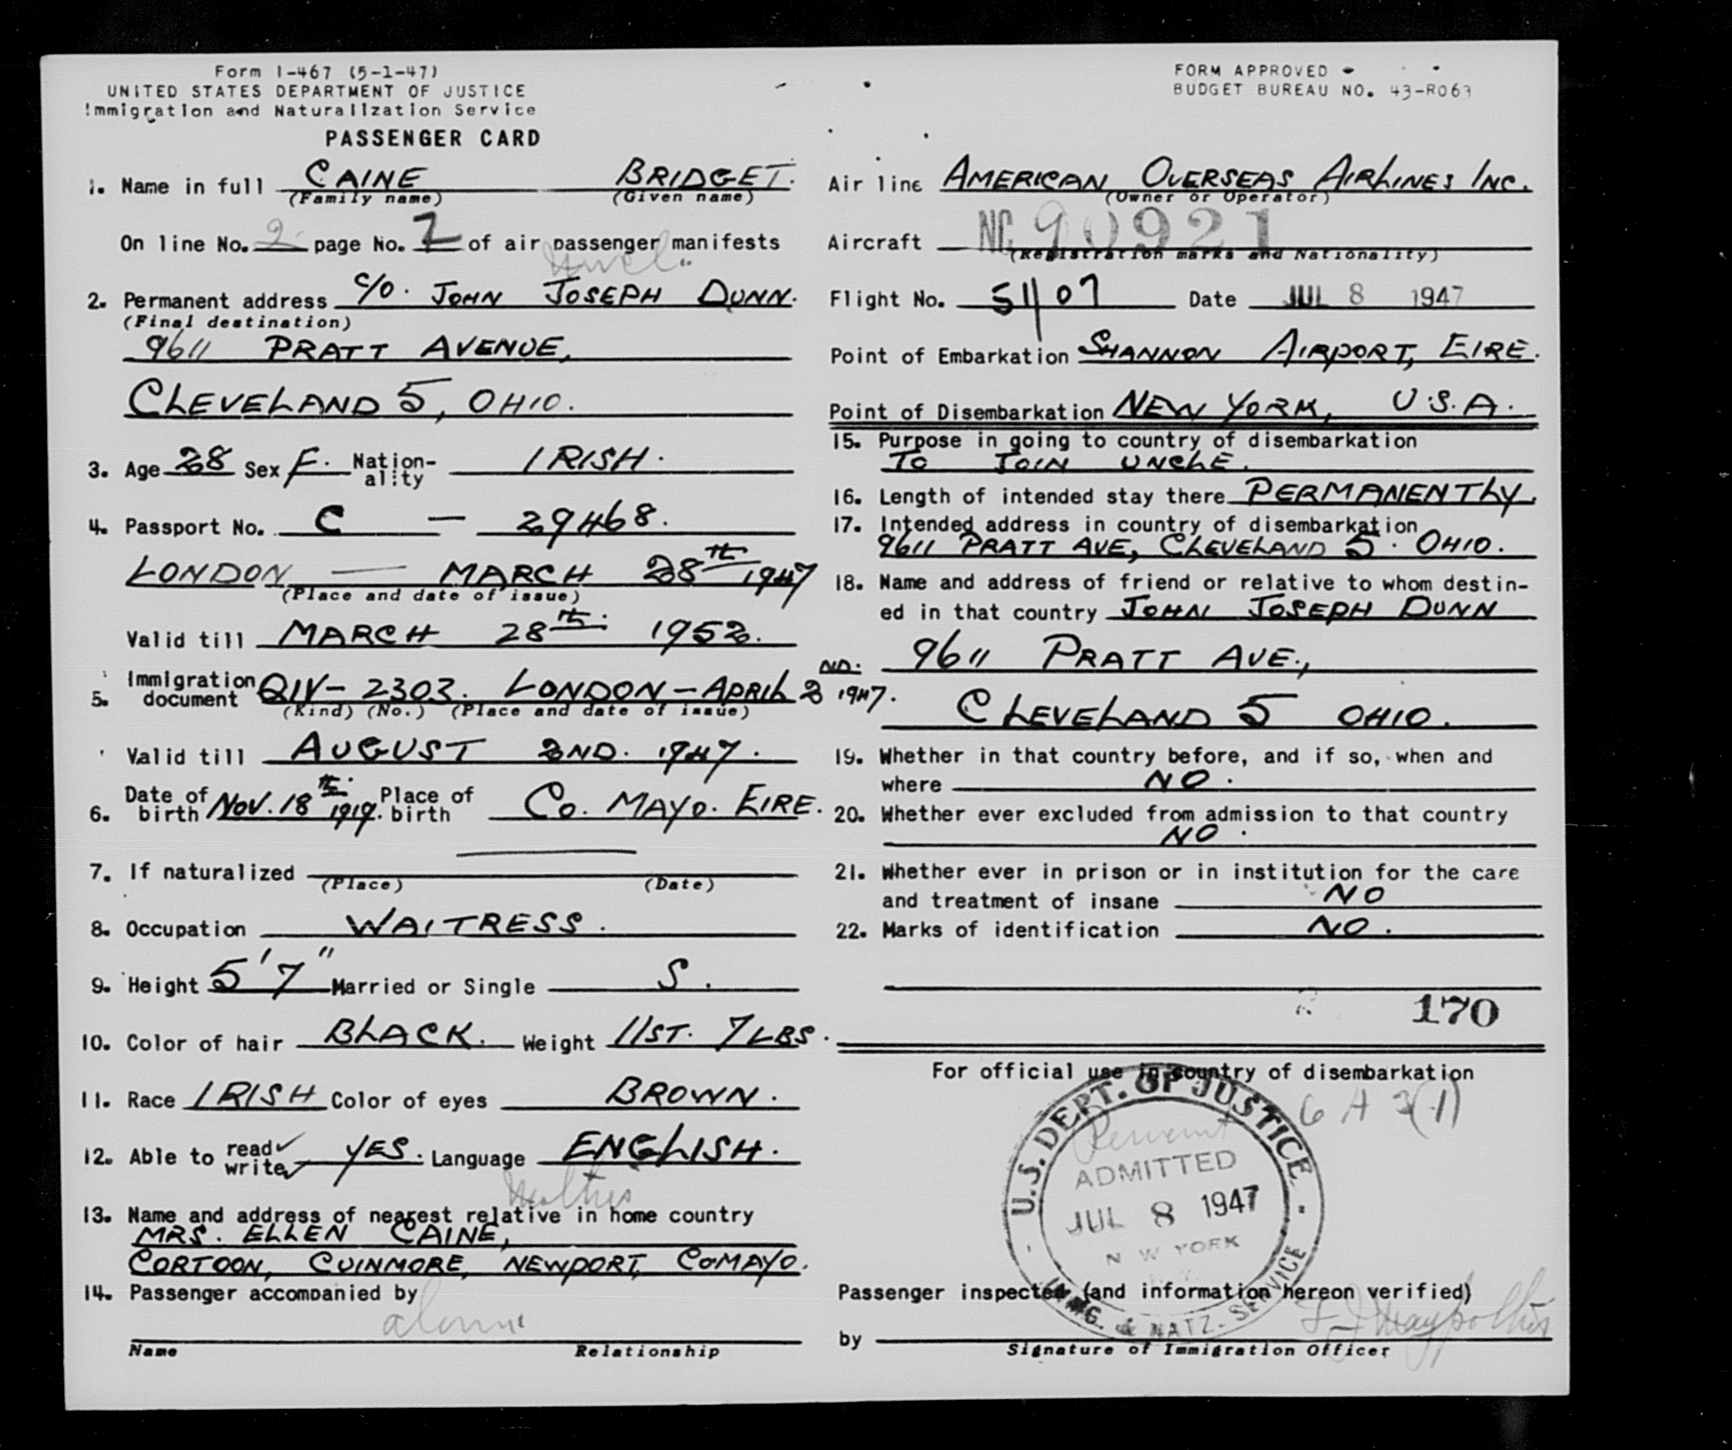 Form I-467 (5-1-47)
UNITED STATES DEPARTMENT OF JUSTICE
Immigration and Naturalization Service
PASSENGER CARD
1. Name in full CAINE BRIDGET.
(Family name) (Given name)
On line No. 2 page No. 7 of air passenger manifests
Uncle
2. Permanent address c/o. JOHN JOSEPH DUNN.
(Final destination)
9611 PRATT AVENUE,
CLEVELAND 5, OHIO.
3. Age 28 Sex F. Nation-ality IRISH.
4. Passport No. C — 29468.
LONDON — MARCH 28th 1947
(Place and date of issue)
Valid till MARCH 28th. 1952.
5. Immigration document QIV- 2303. LONDON - APRIL 2 ND. 1947.
(Kind) (No.) (Place and date of issue)
Valid till AUGUST 2ND. 1947.
6. Date of birth Nov. 18th. 1919. Place of birth Co. MAYO. EIRE.
7. If naturalized —
(Place) (Date)
8. Occupation WAITRESS.
9. Height 5' 7" Married or Single S.
10. Color of hair BLACK. Weight 11ST. 7LBS.
11. Race IRISH Color of eyes BROWN.
12. Able to read ✓ write ✓ YES. Language ENGLISH.
Mother
13. Name and address of nearest relative in home country
MRS. ELLEN CAINE,
CORTOON, CUINMORE, NEWPORT, CO MAYO.
14. Passenger accompanied by
alone
Name Relationship
FORM APPROVED
BUDGET BUREAU NO. 43-R063
Air line AMERICAN OVERSEAS AIRLINES INC.
(Owner or Operator)
Aircraft NC 90921
(Registration marks and Nationality)
Flight No. 51/07 Date JUL 8 1947
Point of Embarkation SHANNON AIRPORT, EIRE.
Point of Disembarkation NEW YORK, U.S.A.
15. Purpose in going to country of disembarkation
TO JOIN UNCLE.
16. Length of intended stay there PERMANENTLY.
17. Intended address in country of disembarkation
9611 PRATT AVE, CLEVELAND 5. OHIO.
18. Name and address of friend or relative to whom destin-
ed in that country JOHN JOSEPH DUNN
9611 PRATT AVE.,
CLEVELAND 5 OHIO.
19. Whether in that country before, and if so, when and
where NO.
20. Whether ever excluded from admission to that country
NO.
21. Whether ever in prison or in institution for the care
and treatment of insane NO
22. Marks of identification NO.
170
For official use in country of disembarkation
6 A 3(1)
U.S. DEPT. OF JUSTICE
ADMITTED
JUL 8 1947
N W YORK
IMMG. & NATZ. SERVICE
Passenger inspected (and information hereon verified)
by
Signature of Immigration Officer